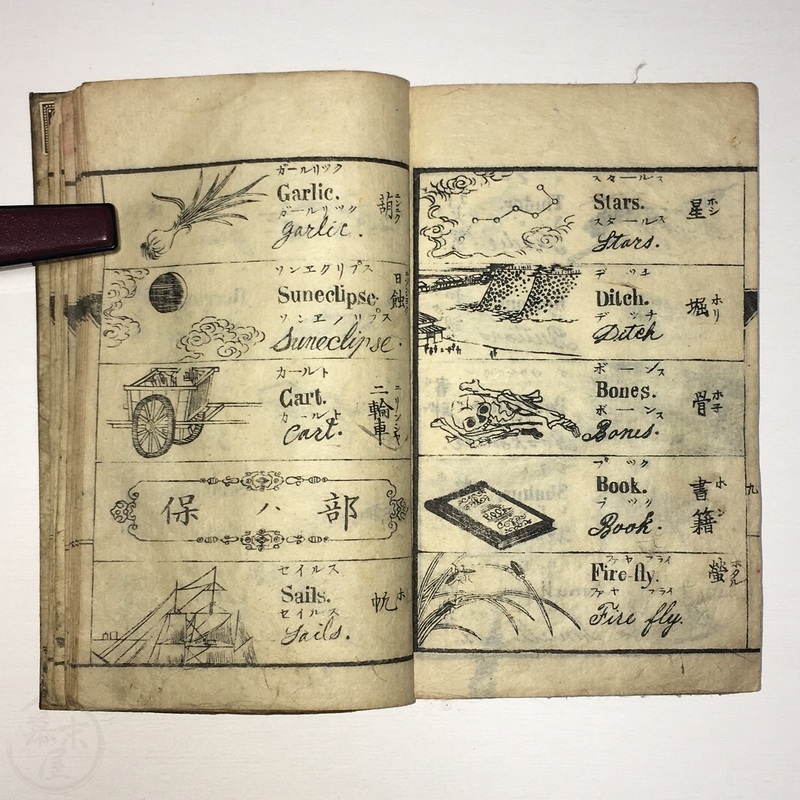 ガールリック
Garlic.
ガールリック
garlic.
葫
ニンニク
ソンエクリプス
Suneclipse.
ソンエノリプス
Suneclipse.
日蝕
カールト
Cart.
カールト
Cart.
二輪車
ニリンシヤ
保ハ部
セイルス
Sails.
セイルス
Sails.
帆
ホ
スタールス
Stars.
スタールス
Stars.
星
ホシ
デッチ
Ditch.
デッチ
Ditch
堀
ホリ
ボーンス
Bones.
ボーンス
Bones.
骨
ホ子
ブック
Book.
ブック
Book.
書籍
ホン
九
ファヤフライ
Fire-fly.
ファヤフライ
Fire fly.
螢
ホタル